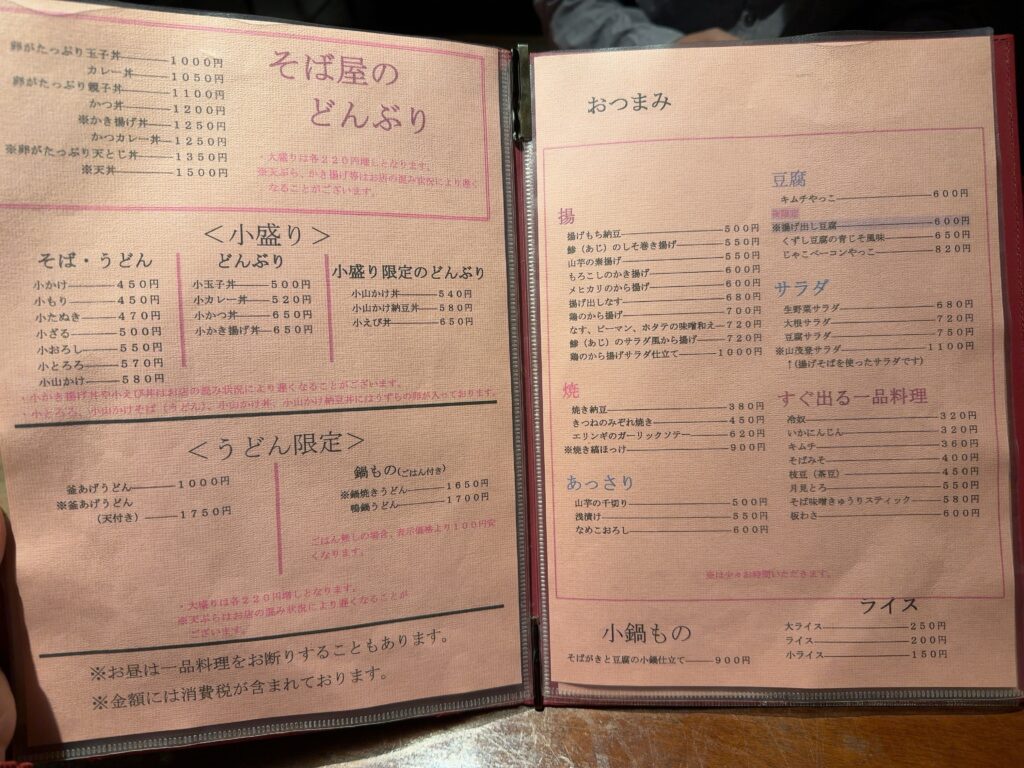 卵がたっぷり玉子丼 1000円
カレー丼 1050円
卵がたっぷり親子丼 1100円
かつ丼 1200円
※かき揚げ丼 1250円
かつカレー丼 1250円
※卵がたっぷり天とじ丼 1350円
※天丼 1500円
そば屋の
どんぶり
・大盛りは各220円増しとなります。
※天ぷら、かき揚げ等はお店の混み状況により遅く
なることがございます。
＜小盛り＞
そば・うどん
小かけ 450円
小もり 450円
小たぬき 470円
小ざる 500円
小おろし 550円
小とろろ 570円
小山かけ 580円
どんぶり
小玉子丼 500円
小カレー丼 520円
小かつ丼 650円
小かき揚げ丼 650円
小盛り限定のどんぶり
小山かけ丼 540円
小山かけ納豆丼 580円
小えび丼 650円
・小かき揚げ丼や小えび丼はお店の混み状況により遅くなることがございます。
・小とろろ、小山かけそば（うどん）、小山かけ丼、小山かけ納豆丼にはうずらの卵が入っております。
＜うどん限定＞
釜あげうどん 1000円
※釜あげうどん
（天付き） 1750円
鍋もの(ごはん付き)
※鍋焼きうどん 1650円
鴨鍋うどん 1700円
ごはん無しの場合、表示価格より100円安
くなります。
・大盛りは各220円増しとなります。
※天ぷらはお店の混み状況により遅くなることが
ございます。
※お昼は一品料理をお断りすることもあります。
※金額には消費税が含まれております。
おつまみ
揚
揚げもち納豆 500円
鯵（あじ）のしそ巻き揚げ 550円
山芋の素揚げ 550円
もろこしのかき揚げ 600円
メヒカリのから揚げ 600円
揚げ出しなす 680円
鶏のから揚げ 700円
なす、ピーマン、ホタテの味噌和え 720円
鯵（あじ）のサラダ風から揚げ 720円
鶏のから揚げサラダ仕立て 1000円
焼
焼き納豆 380円
きつねのみぞれ焼き 450円
エリンギのガーリックソテー 620円
※焼き縞ほっけ 900円
あっさり
山芋の千切り 500円
浅漬け 550円
なめこおろし 600円
豆腐
キムチやっこ 600円
※揚げ出し豆腐 600円
くずし豆腐の青じそ風味 650円
じゃこベーコンやっこ 820円
サラダ
生野菜サラダ 680円
大根サラダ 720円
豆腐サラダ 750円
※山茂登サラダ 1100円
↑(揚げそばを使ったサラダです)
すぐ出る一品料理
冷奴 320円
いかにんじん 320円
キムチ 360円
そばみそ 400円
枝豆（茶豆） 450円
月見とろ 550円
そば味噌きゅうりスティック 580円
板わさ 600円
※は少々お時間いただきます。
小鍋もの
そばがきと豆腐の小鍋仕立て 900円
ライス
大ライス 250円
ライス 200円
小ライス 150円